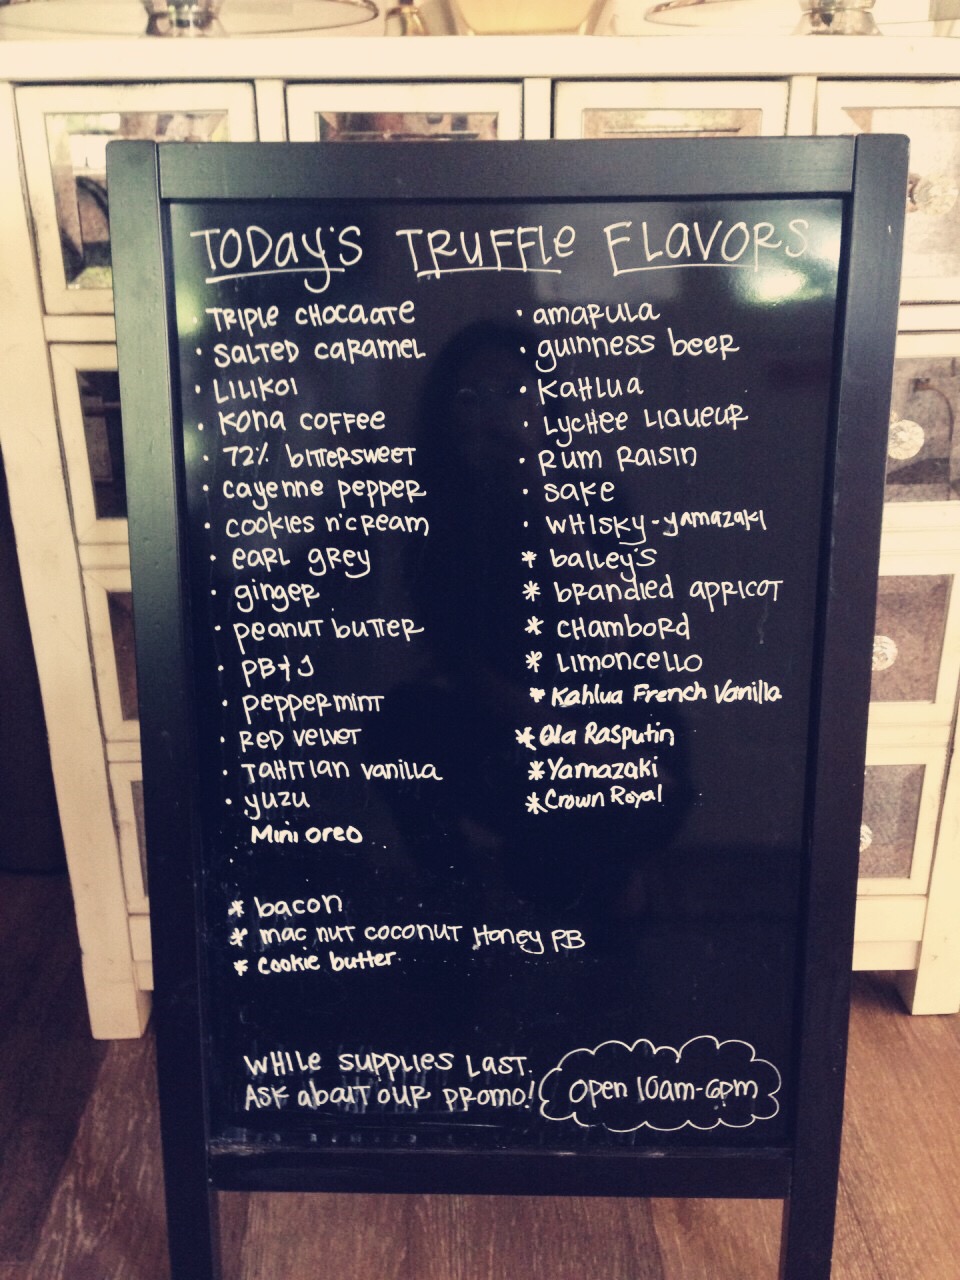 TODAY'S TRUFFLE FLAVORS
· TRIPLE CHOCOLATE
· SALTED CARAMEL
· LILIKOI
· KONA COFFEE
· 72% BITTERSWEET
· CAYENNE PEPPER
· COOKIES N' CREAM
· EARL GREY
· GINGER
· PEANUT BUTTER
· PB+J
· PEPPERMINT
· RED VELVET
· TAHITIAN VANILLA
· YUZU
Mini oreo
* bacon
* mac nut coconut Honey PB
* cookie butter
· AMARULA
· GUINNESS BEER
· KAHLUA
· LYCHEE LIQUEUR
· RUM RAISIN
· SAKE
· WHISKY-YAMAZAKI
* BAILEY'S
* BRANDIED APRICOT
* CHAMBORD
* LIMONCELLO
* Kahlua French Vanilla
* Ola Rasputin
* Yamazaki
* Crown Royal
WHILE SUPPLIES LAST.
ASK ABOUT OUR PROMO!
OPEN 10am-6pm